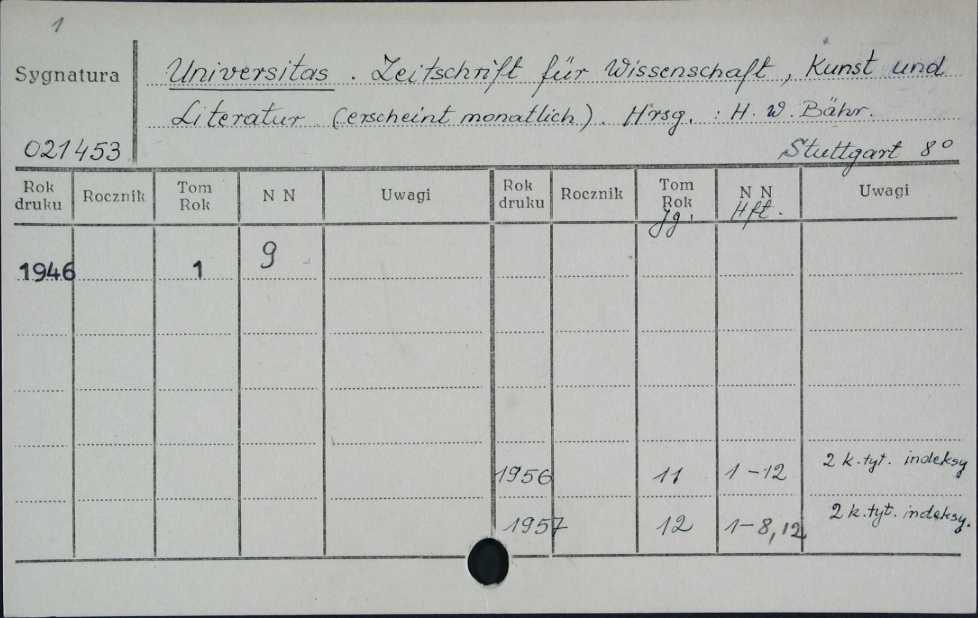 1
Sygnatura Universitas. Zeitschrift für Wissenschaft, Kunst und
Literatur (erscheint monatlich). Hrsg. : H. W. Bähr.
021453 Stuttgart 8°
Rok druku Rocznik Tom Rok N N Uwagi Rok druku Rocznik Tom Rok N N Uwagi
Jg. Hft.
1946 1 9
1956 11 1-12 2 k.tyt. indeksy
1957 12 1-8, 12 2 k.tyt. indeksy.